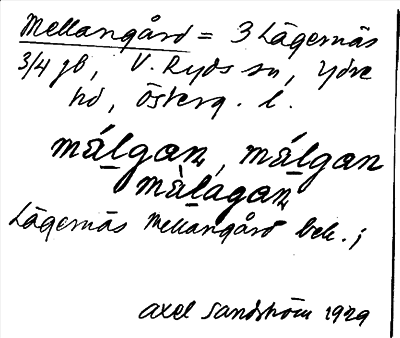 Mellangård = 3 Lägernäs
3/4 gb, V. Ryds sn, Ydre
hd, Österg. l.
málgan, málgan
màlagan
Lägernäs Mellangård bek. ;
Axel Sandström 1929